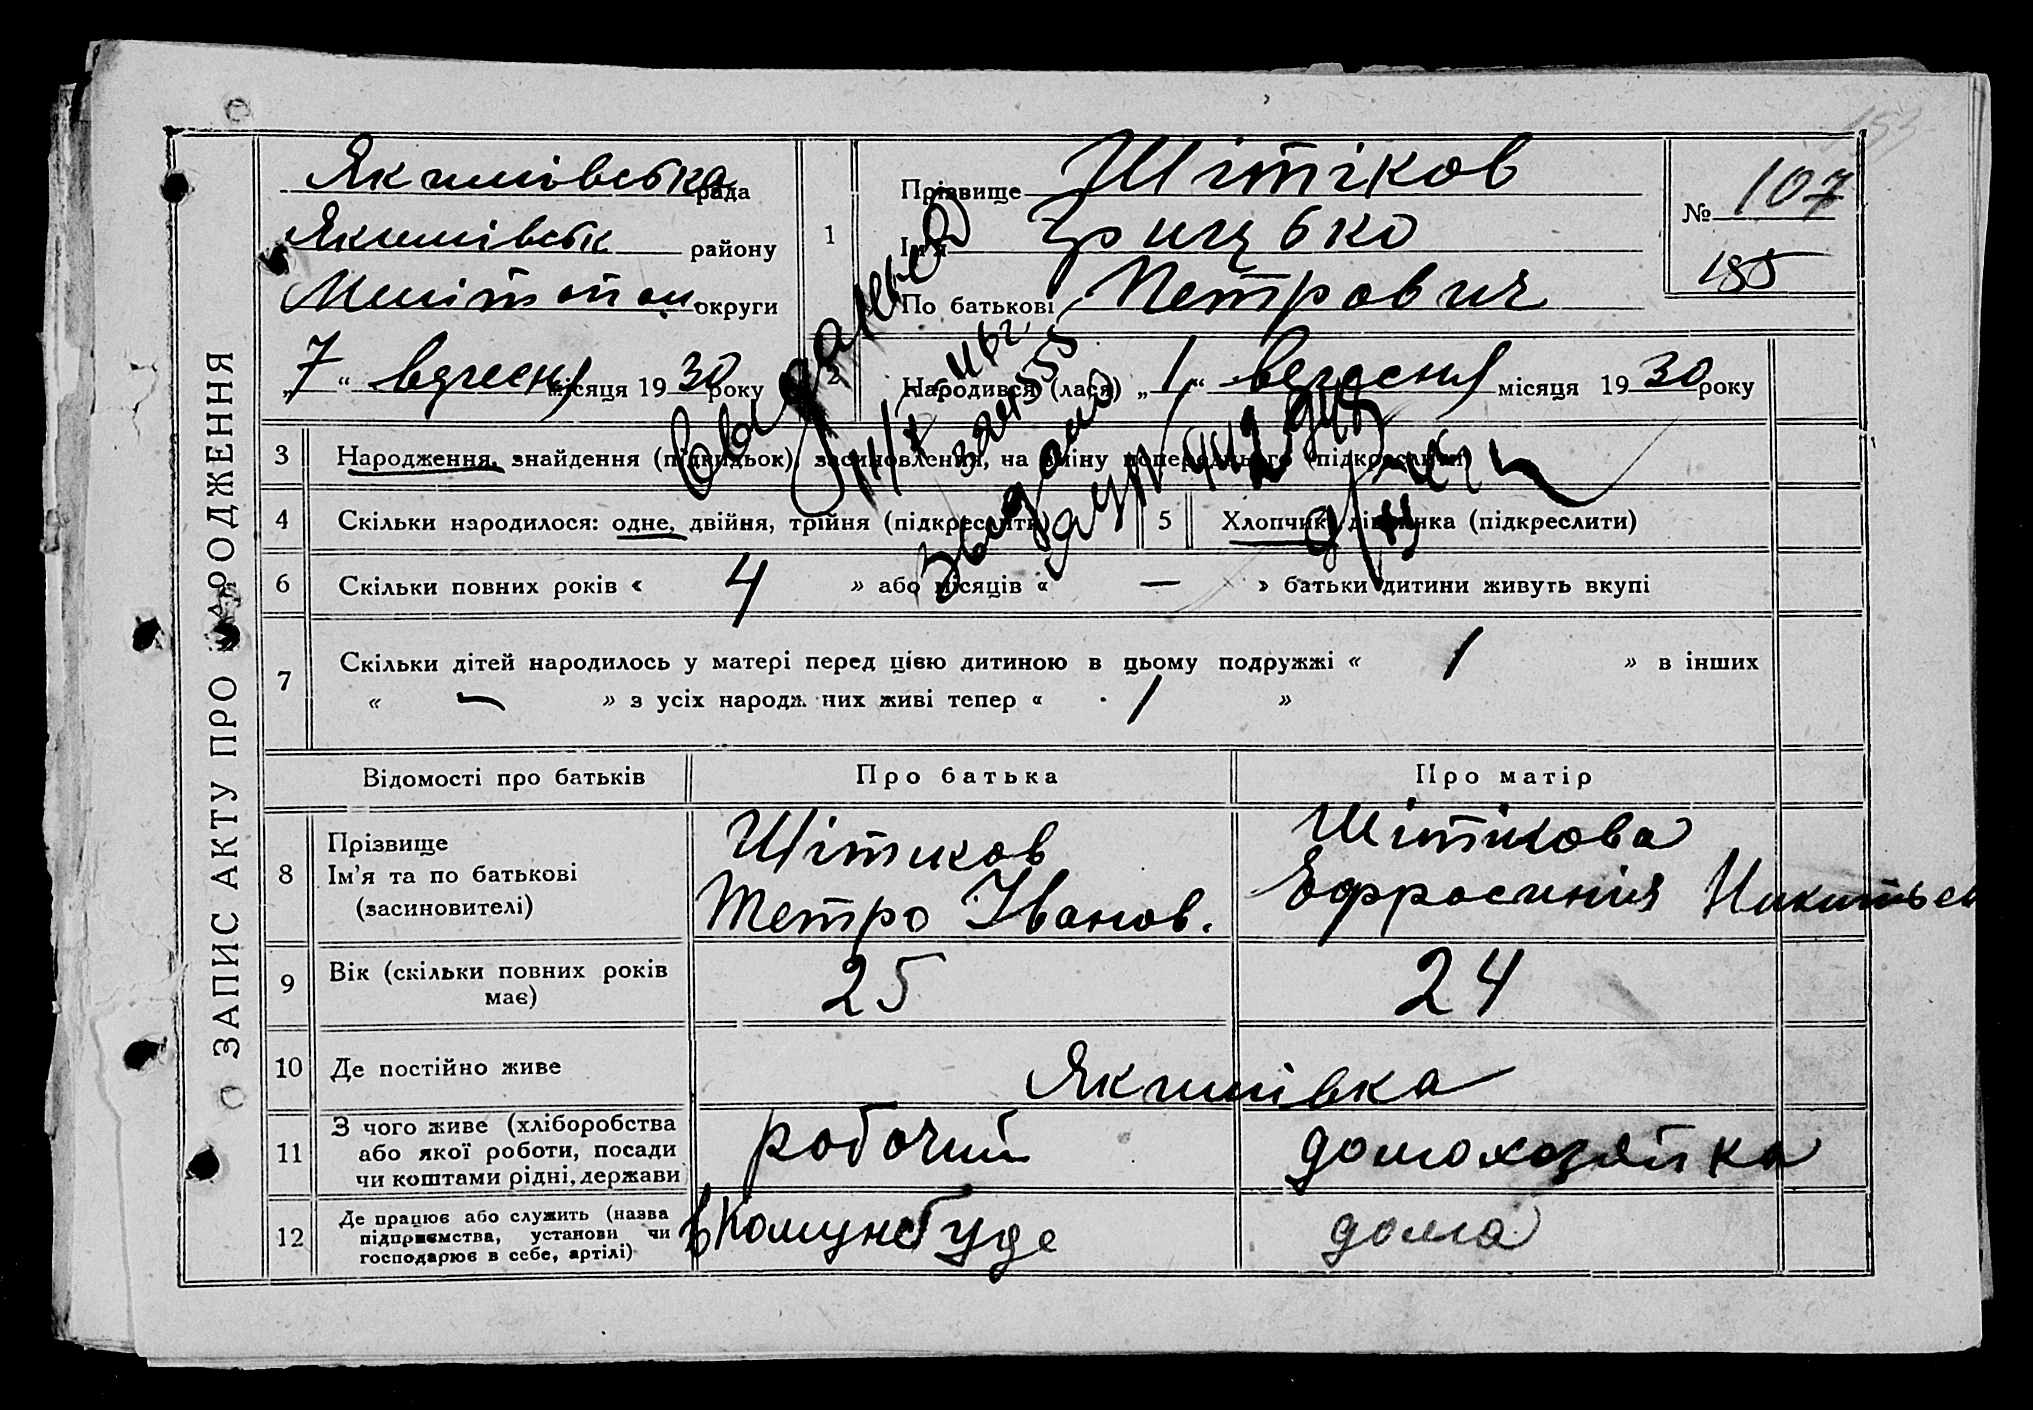 ЗАПИС АКТУ ПРО НАРОДЖЕННЯ
Якимівська рада
Якимівськ району
Мелітоп округи
„7“ вересня місяця 1930 року
1
Прізвище Шітіков
Ім'я Грицько
По батькові Петрович
№ 107
185
2
Народився (лася) „1“ вересня місяця 1930 року
3 Народження, знайдення (підкидьок), засиновлення, на зміну попереднього (підкреслити)
4 Скільки народилося: одне, двійня, трійня (підкреслити)
5 Хлопчик, дівчинка (підкреслити)
6 Скільки повних років « 4 » або місяців « — » батьки дитини живуть вкупі
7 Скільки дітей народилось у матері перед цією дитиною в цьому подружжі « 1 » в інших
« — » з усіх народжених живі тепер « 1 »
Відомості про батьків Про батька Про матір
8 Прізвище
Ім'я та по батькові
(засиновителі)
Шітиков
Петро Іванов.
Шітікова
Ефросинія Никитьев
9 Вік (скільки повних років
має)
25 24
10 Де постійно живе Якимівка
11 З чого живе (хліборобства
або якої роботи, посади
чи коштами рідні, держави
робочий домохозяйка
12 Де працює або служить (назва
підприємства, установи чи
господарює в себе, артілі)
в Комунбуде дома